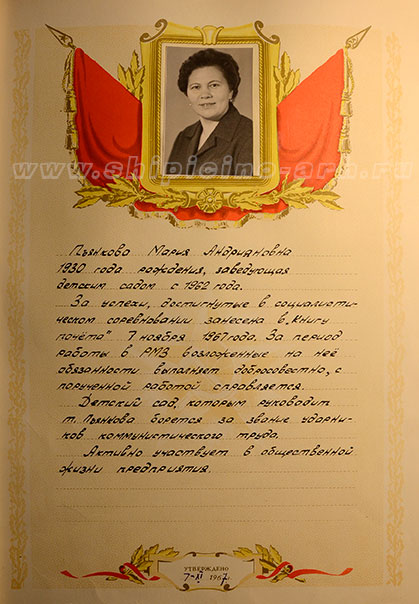 www.shipicino-arh.ru
Пьянкова Мария Андрияновна
1930 года рождения, заведующая
детским садом с 1962 года.
За успехи, достигнутые в социалисти-
ческом соревновании занесена в „Книгу
почёта" 7 ноября 1967 года. За период
работы в РМЗ возложенные на неё
обязанности выполняет добросовестно, с
порученной работой справляется.
Детский сад, которым руководит
т. Пьянкова борется за звание ударни-
ков коммунистического труда.
Активно участвует в общественной
жизни предприятия.
УТВЕРЖДЕНО
7-XI 1967г.